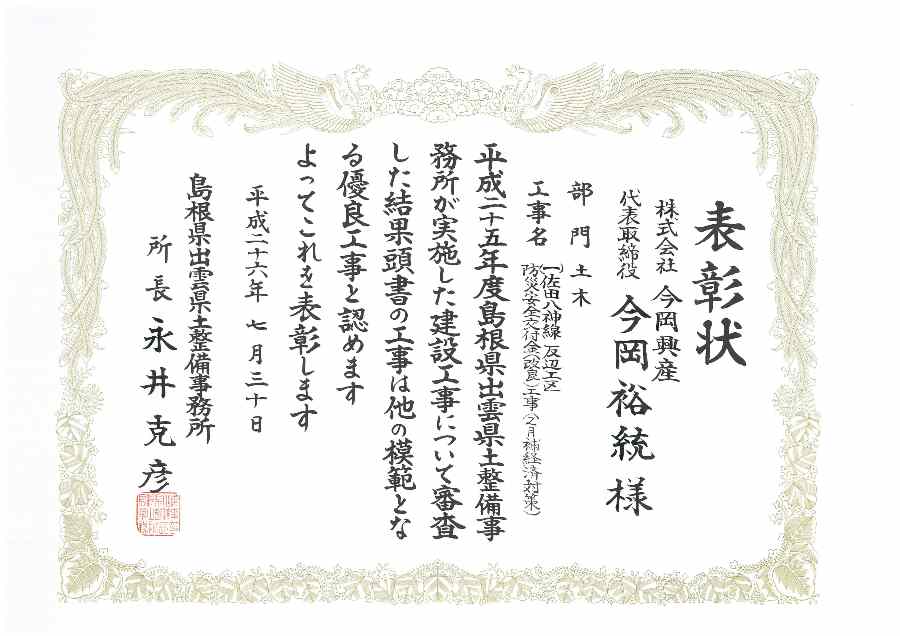 表彰状
株式会社 今岡興産
代表取締役 今岡裕統様
部門 土木
工事名 (一)佐田八神線 反辺工区
防災安全交付金(改良)工事(2月補経済対策)
平成二十五年度島根県出雲県土整備事
務所が実施した建設工事について審査
した結果頭書の工事は他の模範とな
る優良工事と認めます
よってこれを表彰します
平成二十六年 七月三十日
島根県出雲県土整備事務所
所長 永井克彦